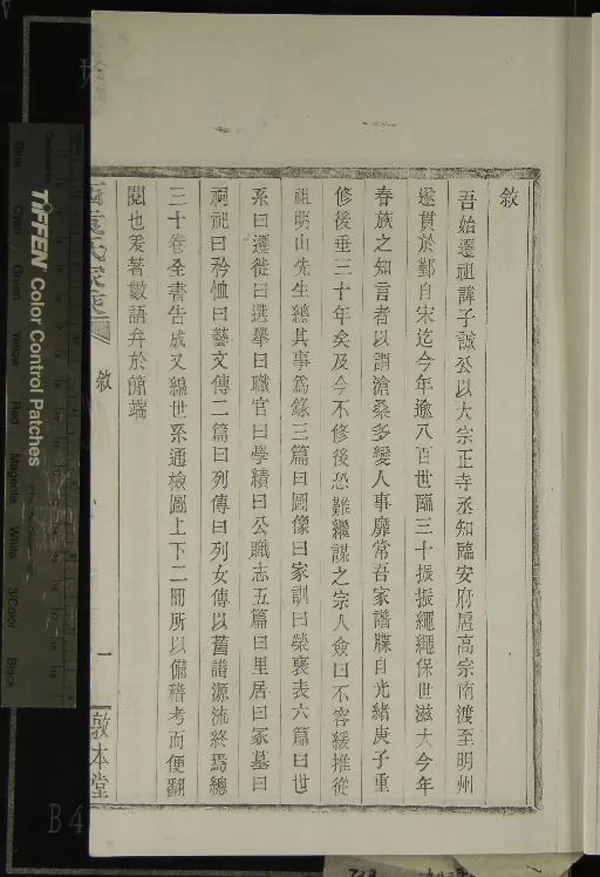 敘
吾始遷祖諱子誠公以大宗正寺丞知臨安府扈高宗南渡至明州
遂貫於鄞自宋迄今年逾八百世臨三十振振繩繩保世滋大今年
春族之知言者以謂滄桑多變人事靡常吾家譜牒自光緒庚子重
修後垂三十年矣及今不修後恐難繼謀之宗人僉曰不容緩推從
祖明山先生總其事爲錄三篇曰圖像曰家訓曰榮褒表六篇曰世
系曰遷徙曰選舉曰職官曰學績曰公職志五篇曰里居曰冢墓曰
祠祀曰矜恤曰藝文傳二篇曰列傳曰列女傳以舊譜源流終焉總
三十卷全書告成又編世系通檢圖上下二冊所以備稽考而便翻
閱也爰著數語弁於簡端
袁氏家乘
敘
一
敦本堂
TIFFEN Color Control Patches
Blue
Cyan
Green
Yellow
Red
Magenta
White
3/Color
Black
Centimetres
B4